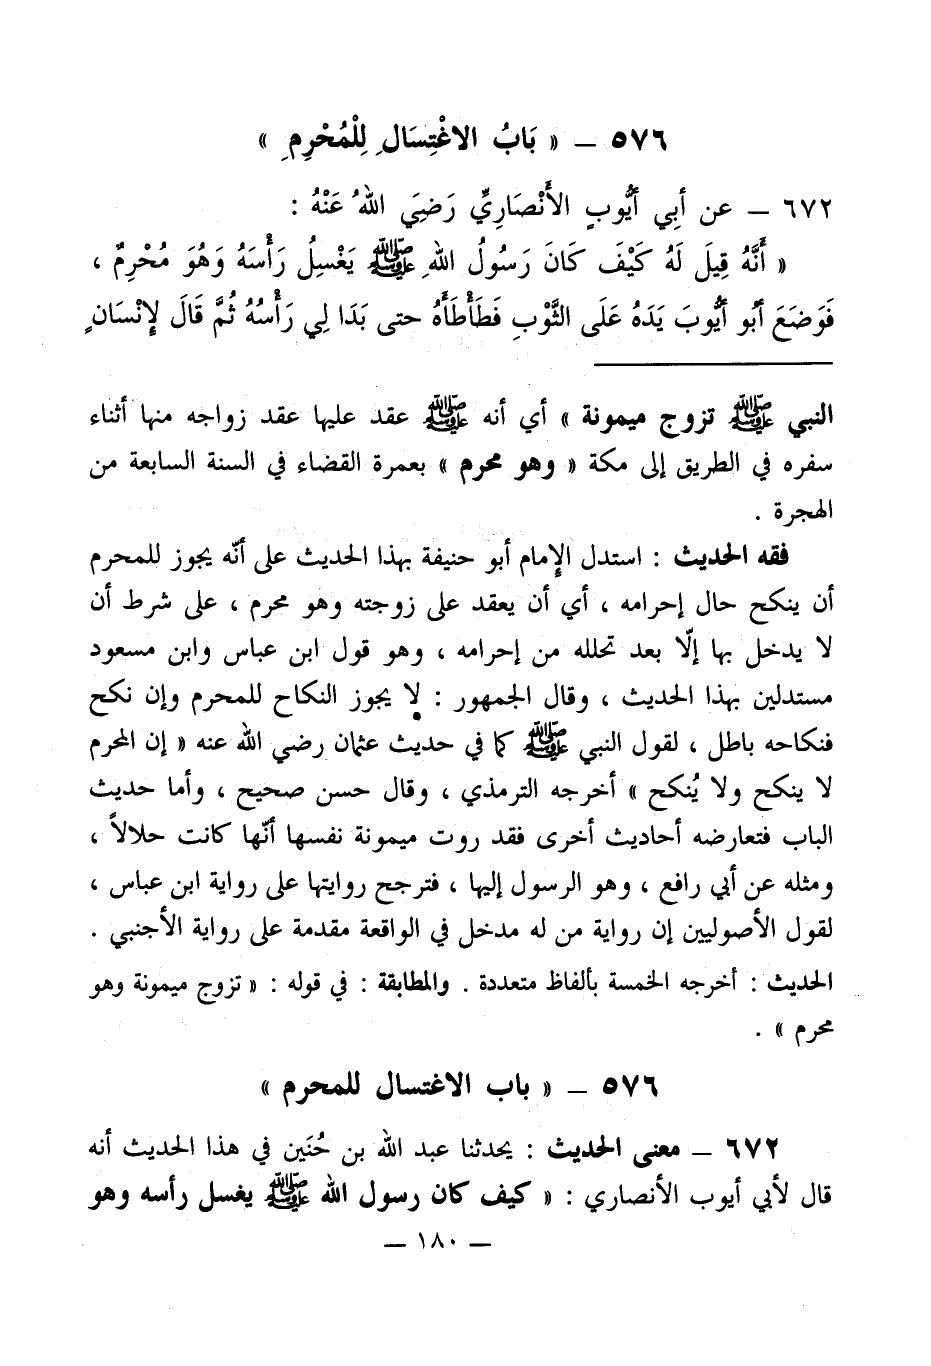 ٥٧٦ – « بَابُ الاغْتِسَالِ لِلْمُحْرِمِ »
٦٧٢ – عن أبِي أيُّوبٍ الأَنْصَارِيِّ رَضِيَ اللهُ عَنْهُ :
« أَنَّهُ قِيلَ لَهُ كَيْفَ كَانَ رَسُولُ اللهِ ﷺ يَغْسِلُ رَأْسَهُ وَهُوَ مُحْرِمٌ ،
فَوَضَعَ أبُو أيُّوبَ يَدَهُ عَلَى الثَّوْبِ فَطَأْطَأَهُ حتى بَدَا لِي رَأْسُهُ ثُمَّ قَالَ لِإنْسَانٍ
النبي ﷺ تزوج ميمونة » أي أنه ﷺ عقد عليها عقد زواجه منها أثناء
سفره في الطريق إلى مكة « وهو محرم » بعمرة القضاء في السنة السابعة من
الهجرة .
فقه الحديث : استدل الإمام أبو حنيفة بهذا الحديث على أنّه يجوز للمحرم
أن ينكح حال إحرامه ، أي أن يعقد على زوجته وهو محرم ، على شرط أن
لا يدخل بها إلّا بعد تحلله من إحرامه ، وهو قول ابن عباس وابن مسعود
مستدلين بهذا الحديث ، وقال الجمهور : لا يجوز النكاح للمحرم وإن نكح
فنكاحه باطل ، لقول النبي ﷺ كما في حديث عثمان رضي الله عنه « إن المحرم
لا ينكح ولا يُنكح » أخرجه الترمذي ، وقال حسن صحيح ، وأما حديث
الباب فتعارضه أحاديث أخرى فقد روت ميمونة نفسها أنّها كانت حلالاً ،
ومثله عن أبي رافع ، وهو الرسول إليها ، فترجح روايتها على رواية ابن عباس ،
لقول الأصوليين إن رواية من له مدخل في الواقعة مقدمة على رواية الأجنبي .
الحديث : أخرجه الخمسة بألفاظ متعددة . والمطابقة : في قوله : « تزوج ميمونة وهو
محرم » .
٥٧٦ – « باب الاغتسال للمحرم »
٦٧٢ – معنى الحديث : يحدثنا عبد الله بن حُنَين في هذا الحديث أنه
قال لأبي أيوب الأنصاري : « كيف كان رسول الله ﷺ يغسل رأسه وهو
– ١٨٠ –